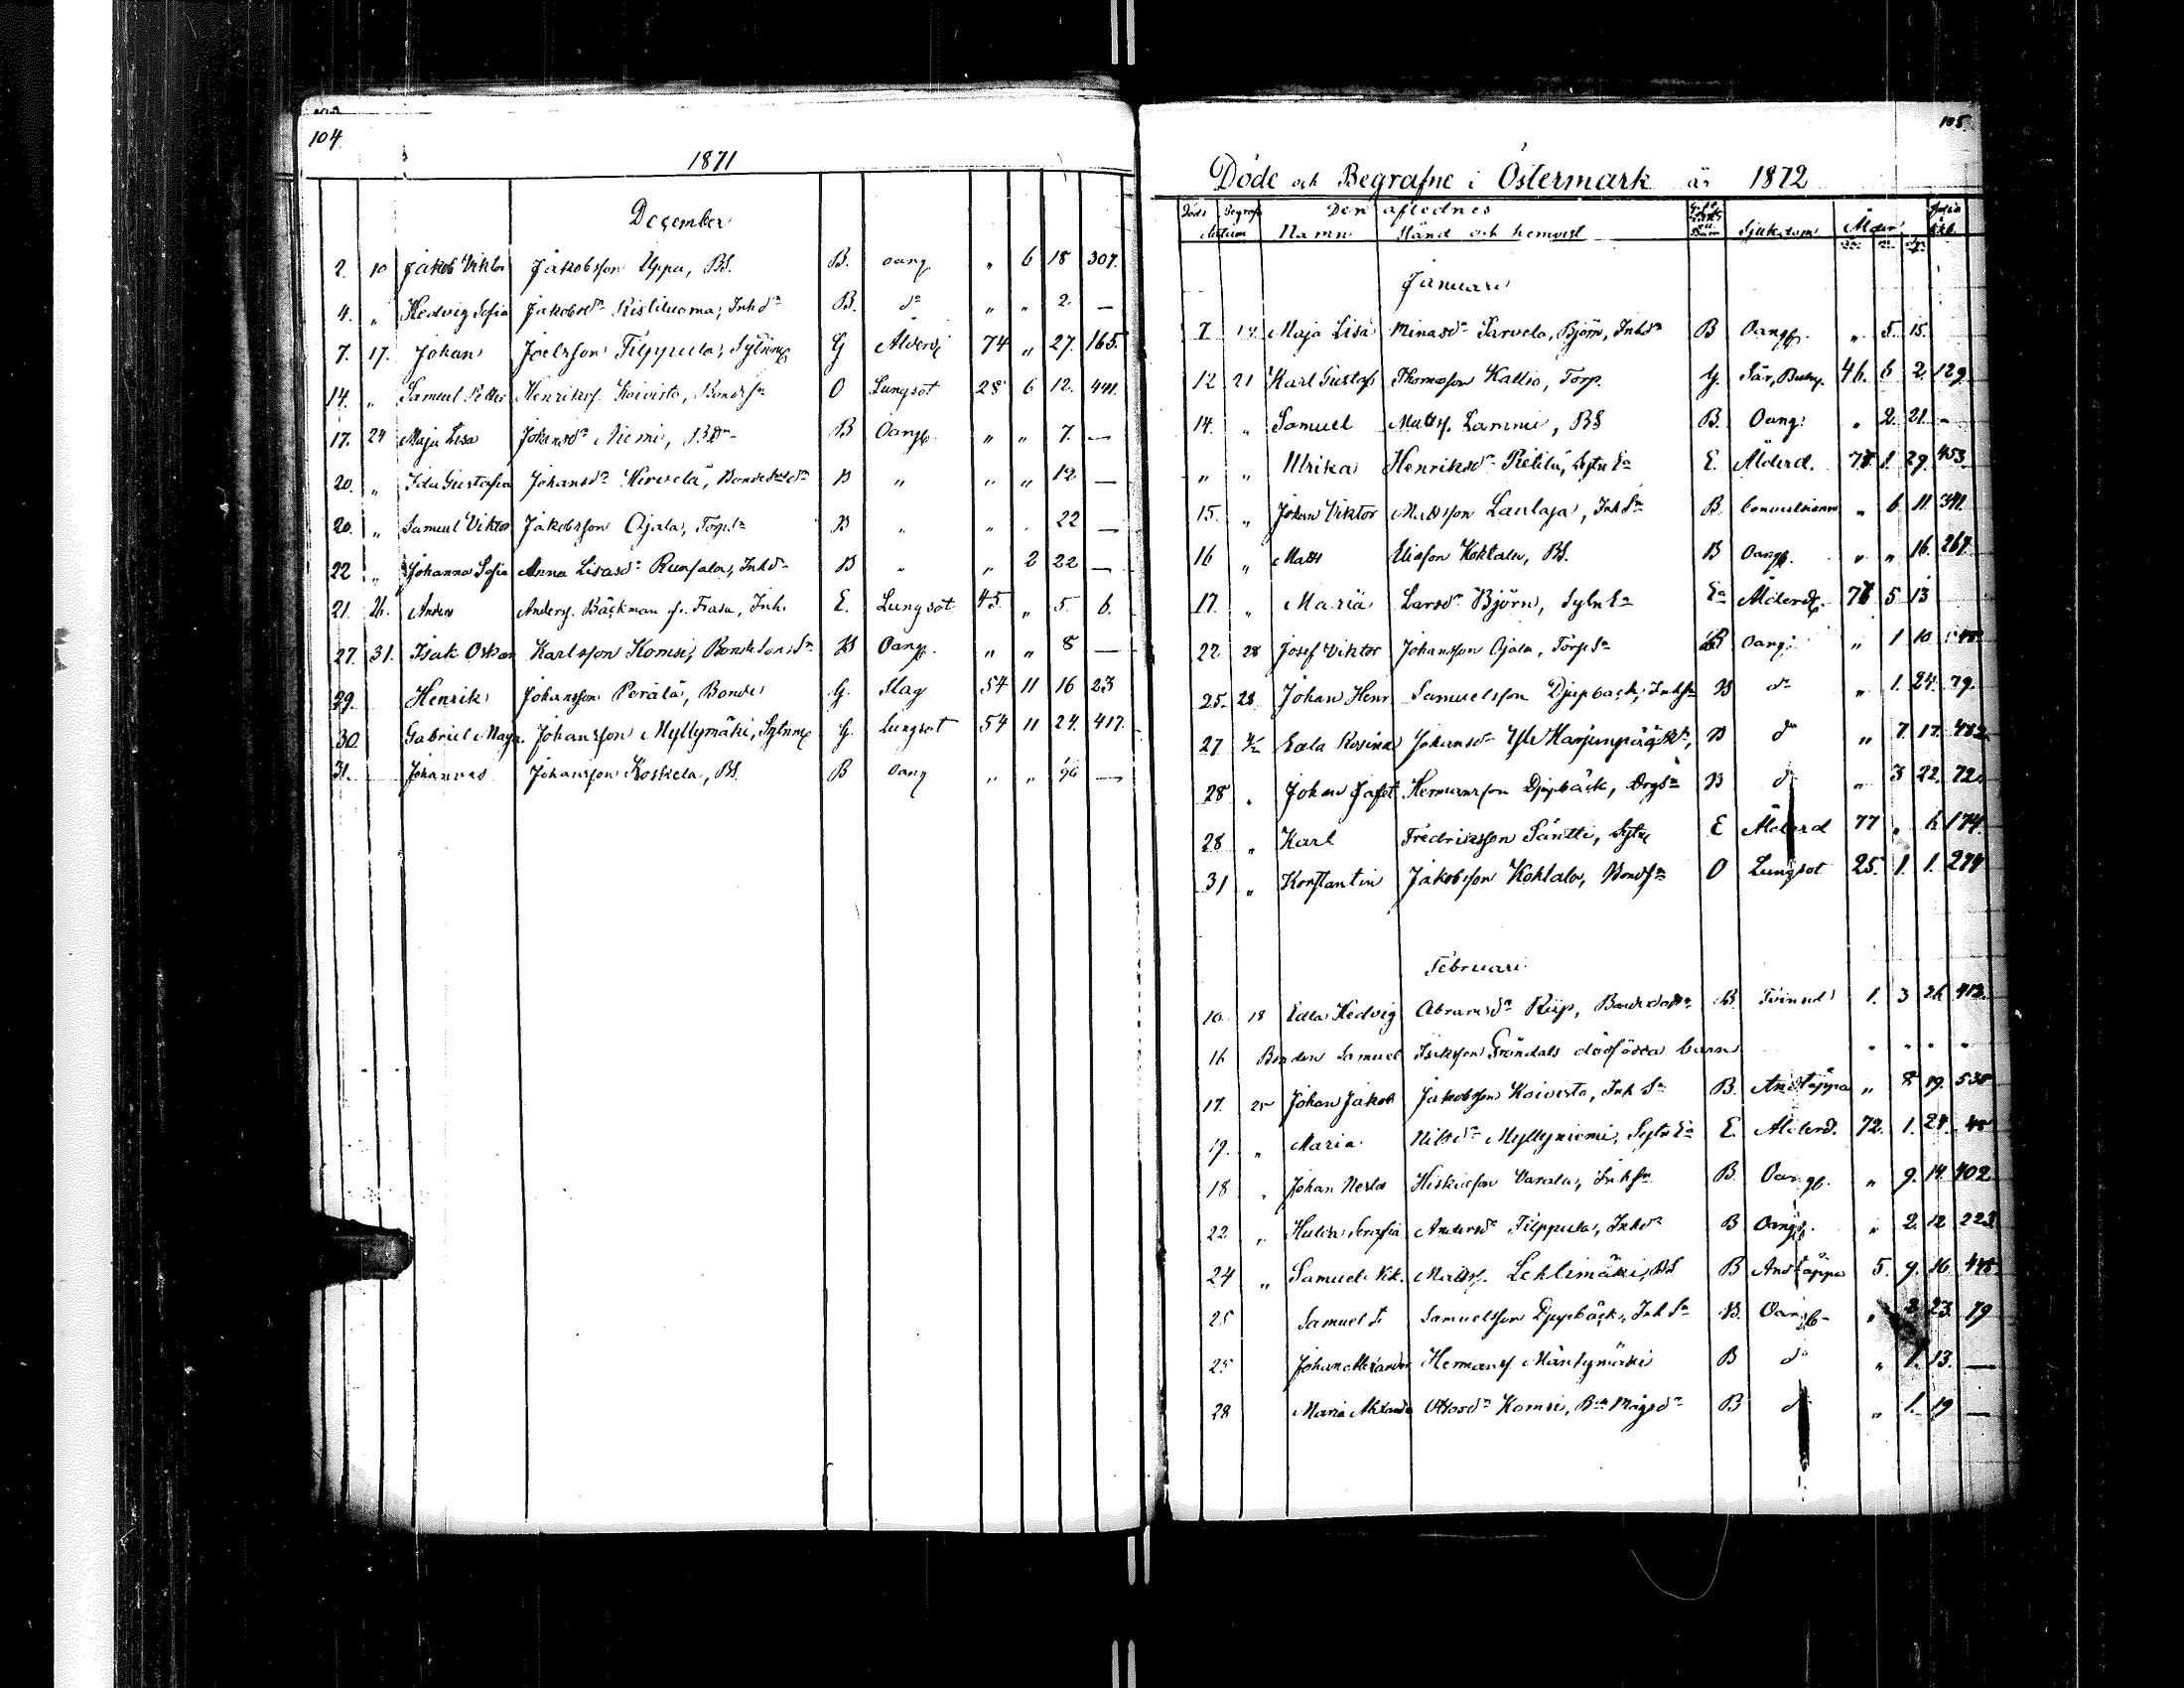 104.
1871
December
2. 10 Jakob Viktor Jakobsson Uppa, BS. B. oang. " 6 18 307.
4. " Hedvig Sofia Jakobsdr Ristiluoma, Inhdr B. do " " 2 —
7. 17. Johan Joelsson Filppula, Sytnm G Ålderd 74 " 27. 165.
14. " Samuel Petter Henrikss. Koivisto, Bondesn O Lungsot 28 6 12. 441.
17. 24 Maja Lisa Johansdr Niemi, B Oangf. " " 7. —
20. " Ida Gustafva Johansdr Hirvelä, B " " " 12 —
20. " Samuel Viktor Jakobsson Ojala, Torpsn B " " " 22 —
22 " Johanna Sofia Anna Lisasdr Runsala, Inhdr B " " 2 22 —
21. 26. Anders Anders. Bäckman Inh. E. Lungsot 45 " 5. 6.
27. 31. Isak Oskar Karlsson Komsi, B Oangf. " " 8 —
29. Henrik Johansson Perälä, Bonde G. Slag 54 11 16 23
30. Gabriel Magn. Johansson Myllymäki, Sytnm G. Lungsot 54 11 24. 417.
31. Johannes Johansson Koskela, BS. B oang " " —
105.
Döde och Begrafne i Östermark år 1872
Döds Begrafn. Den aflednes
datum Namn Stånd och hemvist Sjukdom Ålder
Januari
7 Maja Lisa Minasdr Sarvela, Björn, Inhdr B Oangf. " 5. 15.
12 21 Karl Gustaf Thomasson Kallio, Torp. G. 46. 6 2. 129.
14. " Samuel Matts. Lammi, BS B. Oang. " 2. 21. -
" " Ulrika Henriksdr Pietilä, Sytn Ea E. Ålderd. 1. 29. 453.
15. " Johan Viktor Mattsson Laulaja, Inh Sn B. " 6 11. 341.
16 " Matts Eliasson Kohtala, BS. B Oangf. " " 16. 267
17. " Maria Larsdr Björn, Sytn Ea Ea Ålderd. 5 13
22 28 Josef Viktor Johansson Ojala, Torp Sn B oang. " 1 10
25. 28 Johan Henr Samuelsson Djupback, Inhsn B do " 1. 24. 79.
27 4/2 Edla Rosina Johansdr Yli Harjunpää B do " 7. 17.
28 " Johan Jafet Hermansson Djupbäck, B do " 3 22. 72.
28 " Karl Fredriksson Säntti, Sytn E Ålderd 77 " 6 174.
31 " Konstantin Jakobsson Kohtala, Bondsn O Lungsot 25. 1. 1. 274
Februari
10 18 Edla Hedvig Abramsdr Riip, B. 1. 3 26 413.
16 Bonden Samuel Isaksson Gröndals dödfödda barn " " " "
17. 25 Johan Jakob Jakobsson Koivisto, Inh Sn B. Andtäppa " 8 19. 535
19. " Maria Nilsdr Myllyniemi, Sytn Ea E. Ålderd. 72. 1. 24. 45
18 " Johan Nestor Hiskiasson Varala, Inhsn B. Oangf. " 9. 14. 402
22 " Hulda Serafia Andersdr Filppula, Inhdr B Oangf. " 2. 12 223
24 " Samuel Vik. Matts. Lehtimäki, BS B Andtäppa 5. 9. 16 445
25 Samuel Samuelsson Djupbäck, Inh Sn B. Oangf. " 2 23. 79
25 Johan Alexander Hermans Mäntymäki B do " 1. 13. —
28 Maria Alexandra Ottosdr Komsi, B do " 1. 19 —